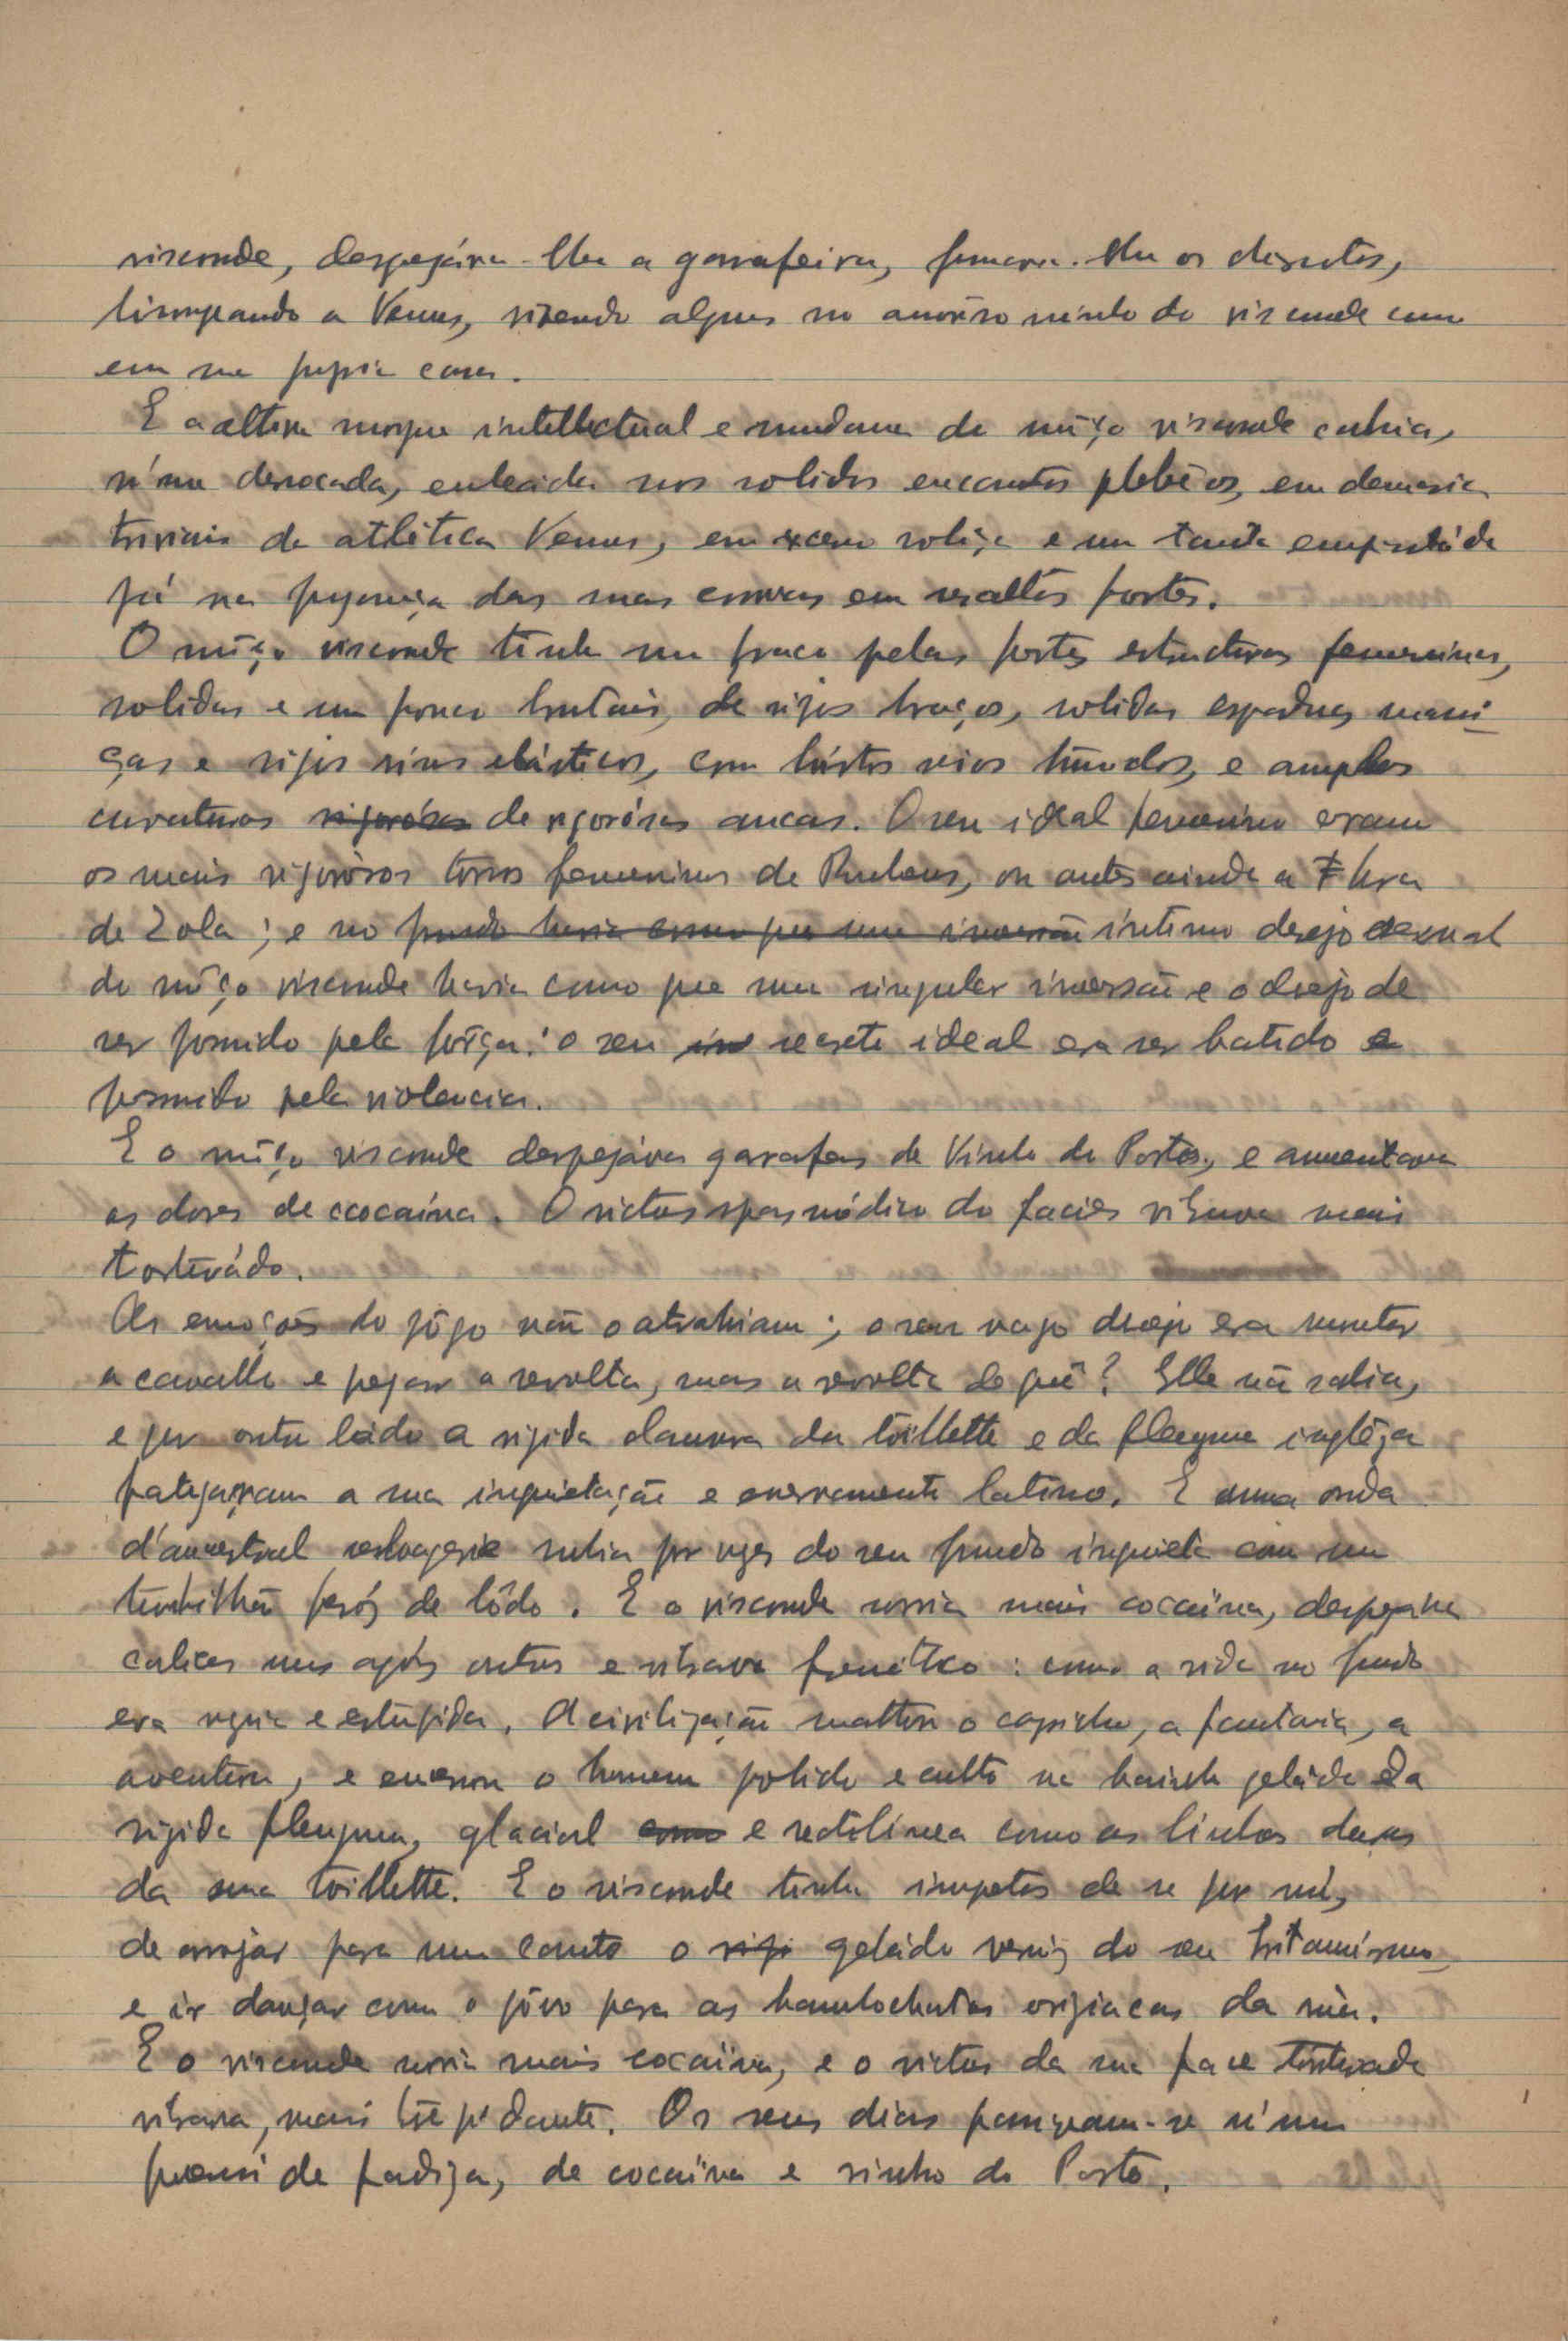 visconde, despejára-lhe a garrafeira, fumara-lhe os charutos,
lisongeando a Venus, vivendo algures no amorôso ninho do visconde como
em sua propria casa.
E a altiva morgue intellectual e mundana do môço visconde cahia,
n'uma derrocada, enleiada nos solidos encantos plebêos, em demasia
triviais da atlética Venus, em excesso roliça e um tanto
já na pujança das suas curvas em resaltos fortes.
O môço visconde tinha um fraco pelas fortes estructuras femeninas,
solidas e um pouco brutais, de rijos braços, solidas espaduas massi-
ças e rijos sinos elásticos, com bustos rios tumidos, e amplas
curvaturas vigorósas de vigorósas ancas. O seu ideal femenino eram
os mais vigorósos torsos femeninos de Rubens, ou antes ainda a
de Zola; e no fundo havia como que uma inversão intimo desejo sexual
do môço visconde havia como que uma singular inversão e o desejo de
ser possuido pela fôrça: o seu secreto ideal era ser batido e
possuido pela violencia.
E o môço visconde despejáva garrafas de Vinho do Porto, e aumentava
as doses de cocaína. O rictus spasmódico do facies vibrava mais
torturádo.
As emoções do jôgo não o atrahiam; o seu vago desejo era montar
a cavallo e pegar a revolta, mas a revolta de quê? Elle não sabia,
e por outro lado a rigida clausura da toillette e da fleugma inglêza
fatigavam a sua inquietação e enervamento latino. E uma onda
d'ancestral selvageria subia por vezes do seu fundo inquieto como um
turbilhão feróz de lôdo. E o visconde sorvia mais cocaína, despejava
calices uns após outros e vibrava frenético: como a vida no fundo
era vazia e estúpida. A civilização mattou o capricho, a fantasia, a
aventura, e encerrou o homem polido e culto na bainha gelada da
rigida fleugma, glacial como e rectilinea como as linhas duras
da sua toillette. E o visconde tinha impetos de se pôr nú,
de arrojar para um canto o rijo geládo verniz do seu britanismo
e ir dançar com o pôvo para as bambochatas orgiacas da rua.
E o visconde sorvia mais cocaína, e o rictus da sua face torturada
vibrava, mais trepidante. Os seus dias passavam-se n'um
frenesi de fadiga, de cocaína e vinho do Porto.